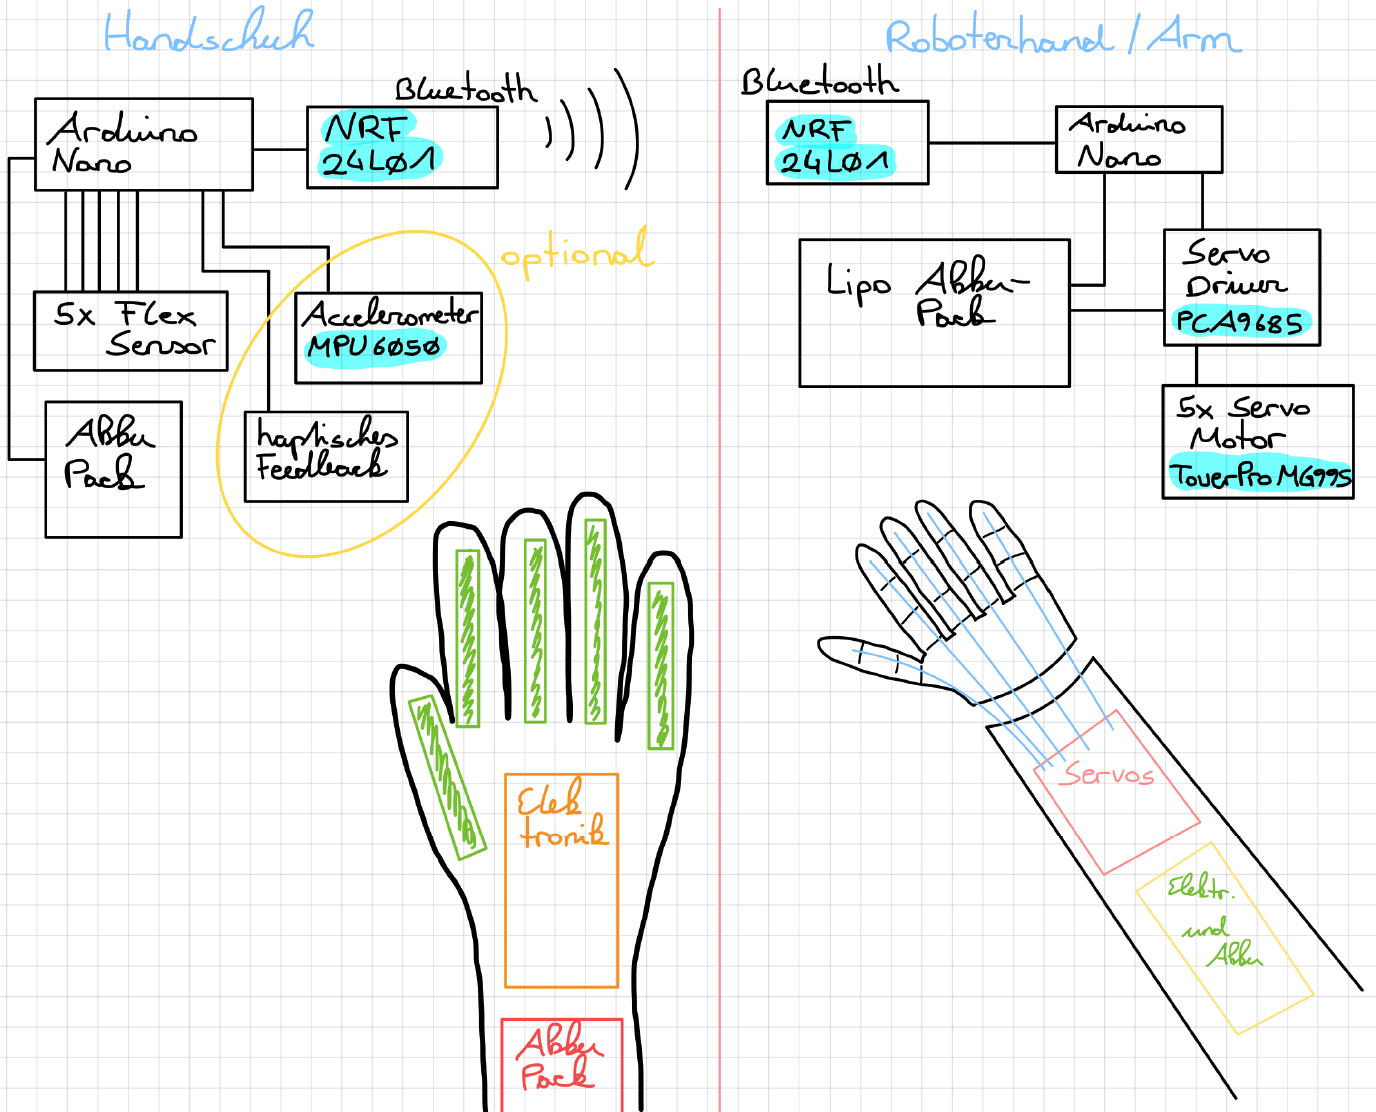 Handschuh
Bluetooth
Arduino
Nano
NRF
24L01
optional
5x Flex
Sensor
Accelerometer
MPU6050
Akku
Pack
haptisches
Feedback
Elek
tronik
Akku
Pack
Roboterhand / Arm
Bluetooth
NRF
24L01
Arduino
Nano
Lipo Akku-
Pack
Servo
Driver
PCA9685
5x Servo
Motor
TowerPro MG995
Servos
Elektr.
und
Akku